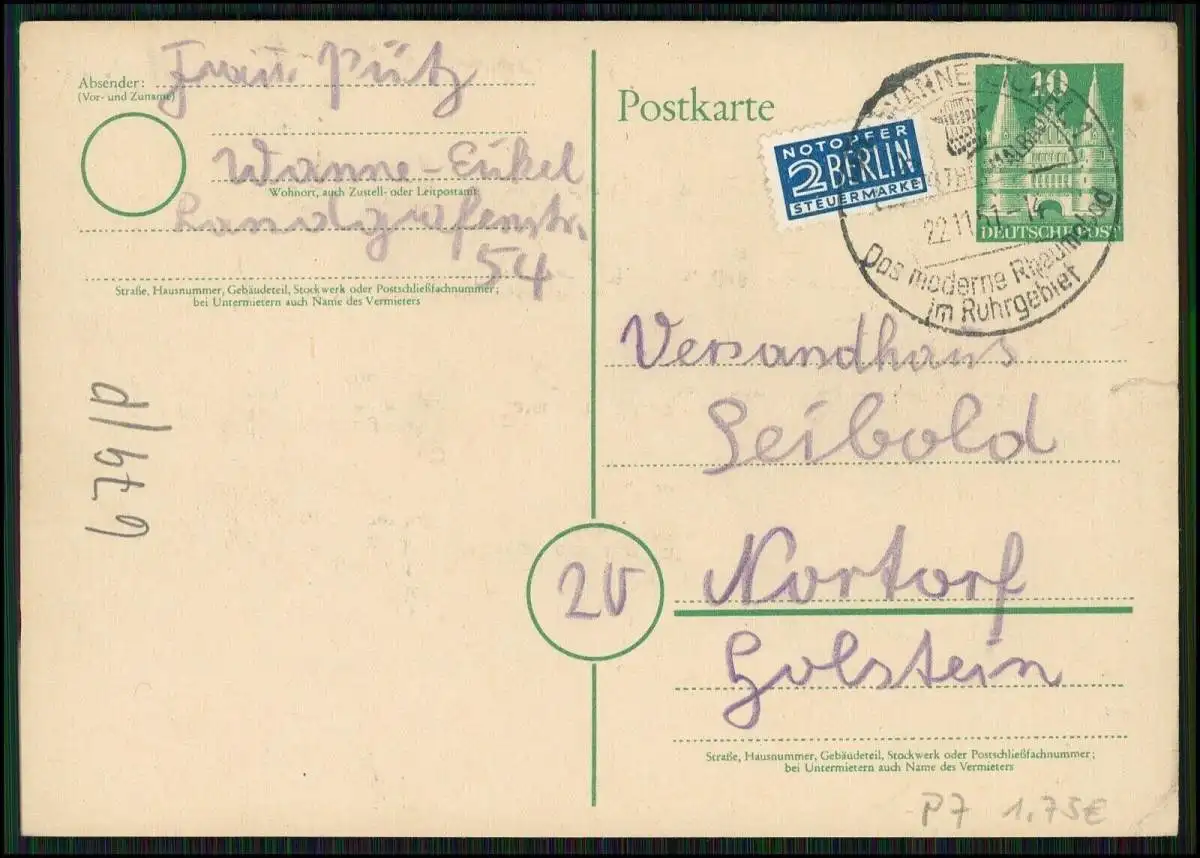 Absender: Frau Pütz
(Vor- und Zuname)
Wanne-Eickel
Wohnort, auch Zustell- oder Leitpostamt
Landgrafenstr.
54
Straße, Hausnummer, Gebäudeteil, Stockwerk oder Postschließfachnummer;
bei Untermietern auch Name des Vermieters
d/679
Postkarte
NOTOPFER
2 BERLIN
STEUERMARKE
10
DEUTSCHE POST
WANNE-EICKEL 1
22.11.51-14
Das moderne Rheumabad
im Ruhrgebiet
Versandhaus
Seibold
Nortorf
Holstein
Straße, Hausnummer, Gebäudeteil, Stockwerk oder Postschließfachnummer;
bei Untermietern auch Name des Vermieters
P7 1,75€